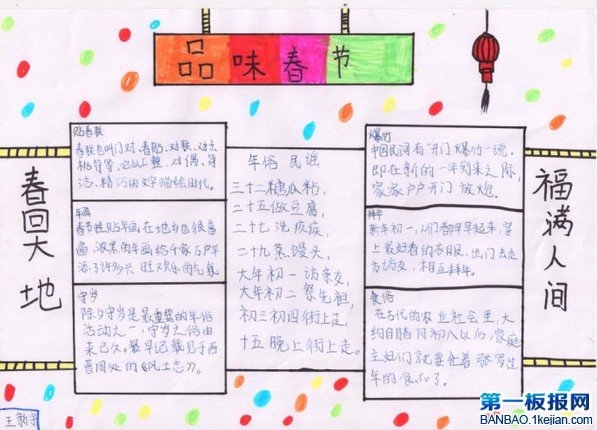 品味春节
春回大地
贴春联
春联也叫门对、春贴、对联、对子、
桃符等等,它以工整、对偶、简
洁、精巧的文字描绘时代。
年画
春节挂贴年画在城乡也很普
遍,浓黑的年画给千家万户平
添了许多兴旺欢乐的气氛
守岁
除夕守岁是最重要的年俗
活动之一,守岁之俗由
来已久。最早记载见于西
晋周处的《风土志》。
年俗 民谣
糖瓜粘,
二十五做豆腐,
二十七洗疚疾,
二十九蒸馒头,
大年初一访亲友,
大年初二祭先祖,
初三初四街上走,
十五晚上街上走。
爆竹
中国民间有“开门爆竹”一说。
即在新的一年到来之际,
家家户户开门放炮.
拜年
新年初一,人们都早早起来,穿
上最好看的衣服,出门去走
亲访友,相互拜年。
食俗
在古代的农业社会里,大
约自腊月初八以后,家庭
主妇们就要忙着张罗过
年的食品了.
福满人间
第一板报网
BANBAO.1kejian.com